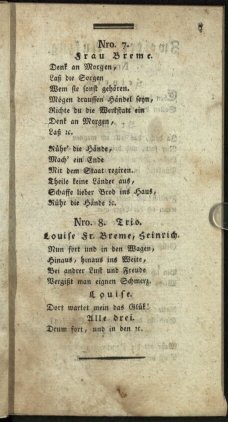 7
Nro. 7.
Frau Breme.
Denk an Morgen,
Laß die Sorgen
Wem sie sonst gehören.
Mögen draussen Händel seyn,
Richte du die Werkstatt ein
Denk an Morgen,
Laß ꝛc.
Rühr' die Hände,
Mach' ein Ende
Mit dem Staat regiren.
Theile keine Länder aus,
Schaffe lieber Brod ins Haus,
Rühr die Hände ꝛc.
Nro. 8. Trio.
Louise Fr. Breme, Heinrich.
Nun fort und in den Wagen,
Hinaus, hinaus ins Weite,
Bei andrer Lust und Freude
Vergißt man eignen Schmerz.
Louise.
Dort wartet mein das Glük!
Alle drei.
Drum fort, und in den ꝛc.